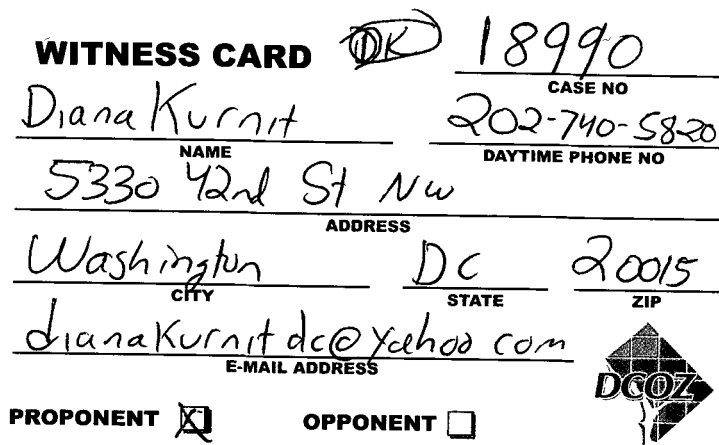 WITNESS CARD DK 18990
CASE NO
Diana Kurnit 202-740-5820
NAME DAYTIME PHONE NO
5330 42nd St NW
ADDRESS
Washington DC 20015
CITY STATE ZIP
dianakurnitdc@yahoo com
E-MAIL ADDRESS
DCOZ
PROPONENT X OPPONENT